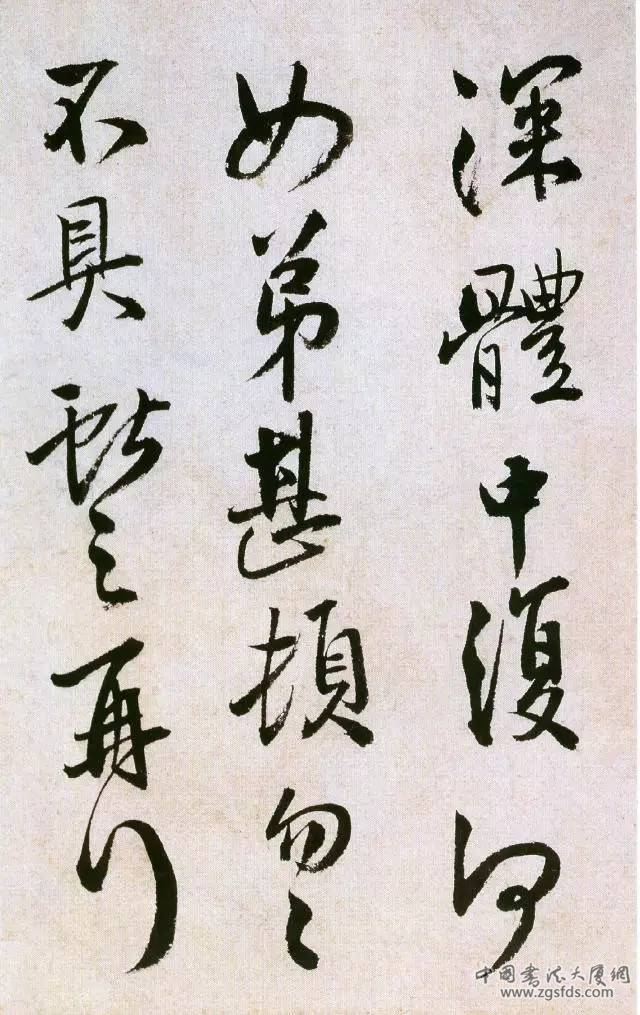 深體中復何
如弟甚頓匆々
不具獻之再拜
中国书法大厦网
www.zgsfds.com